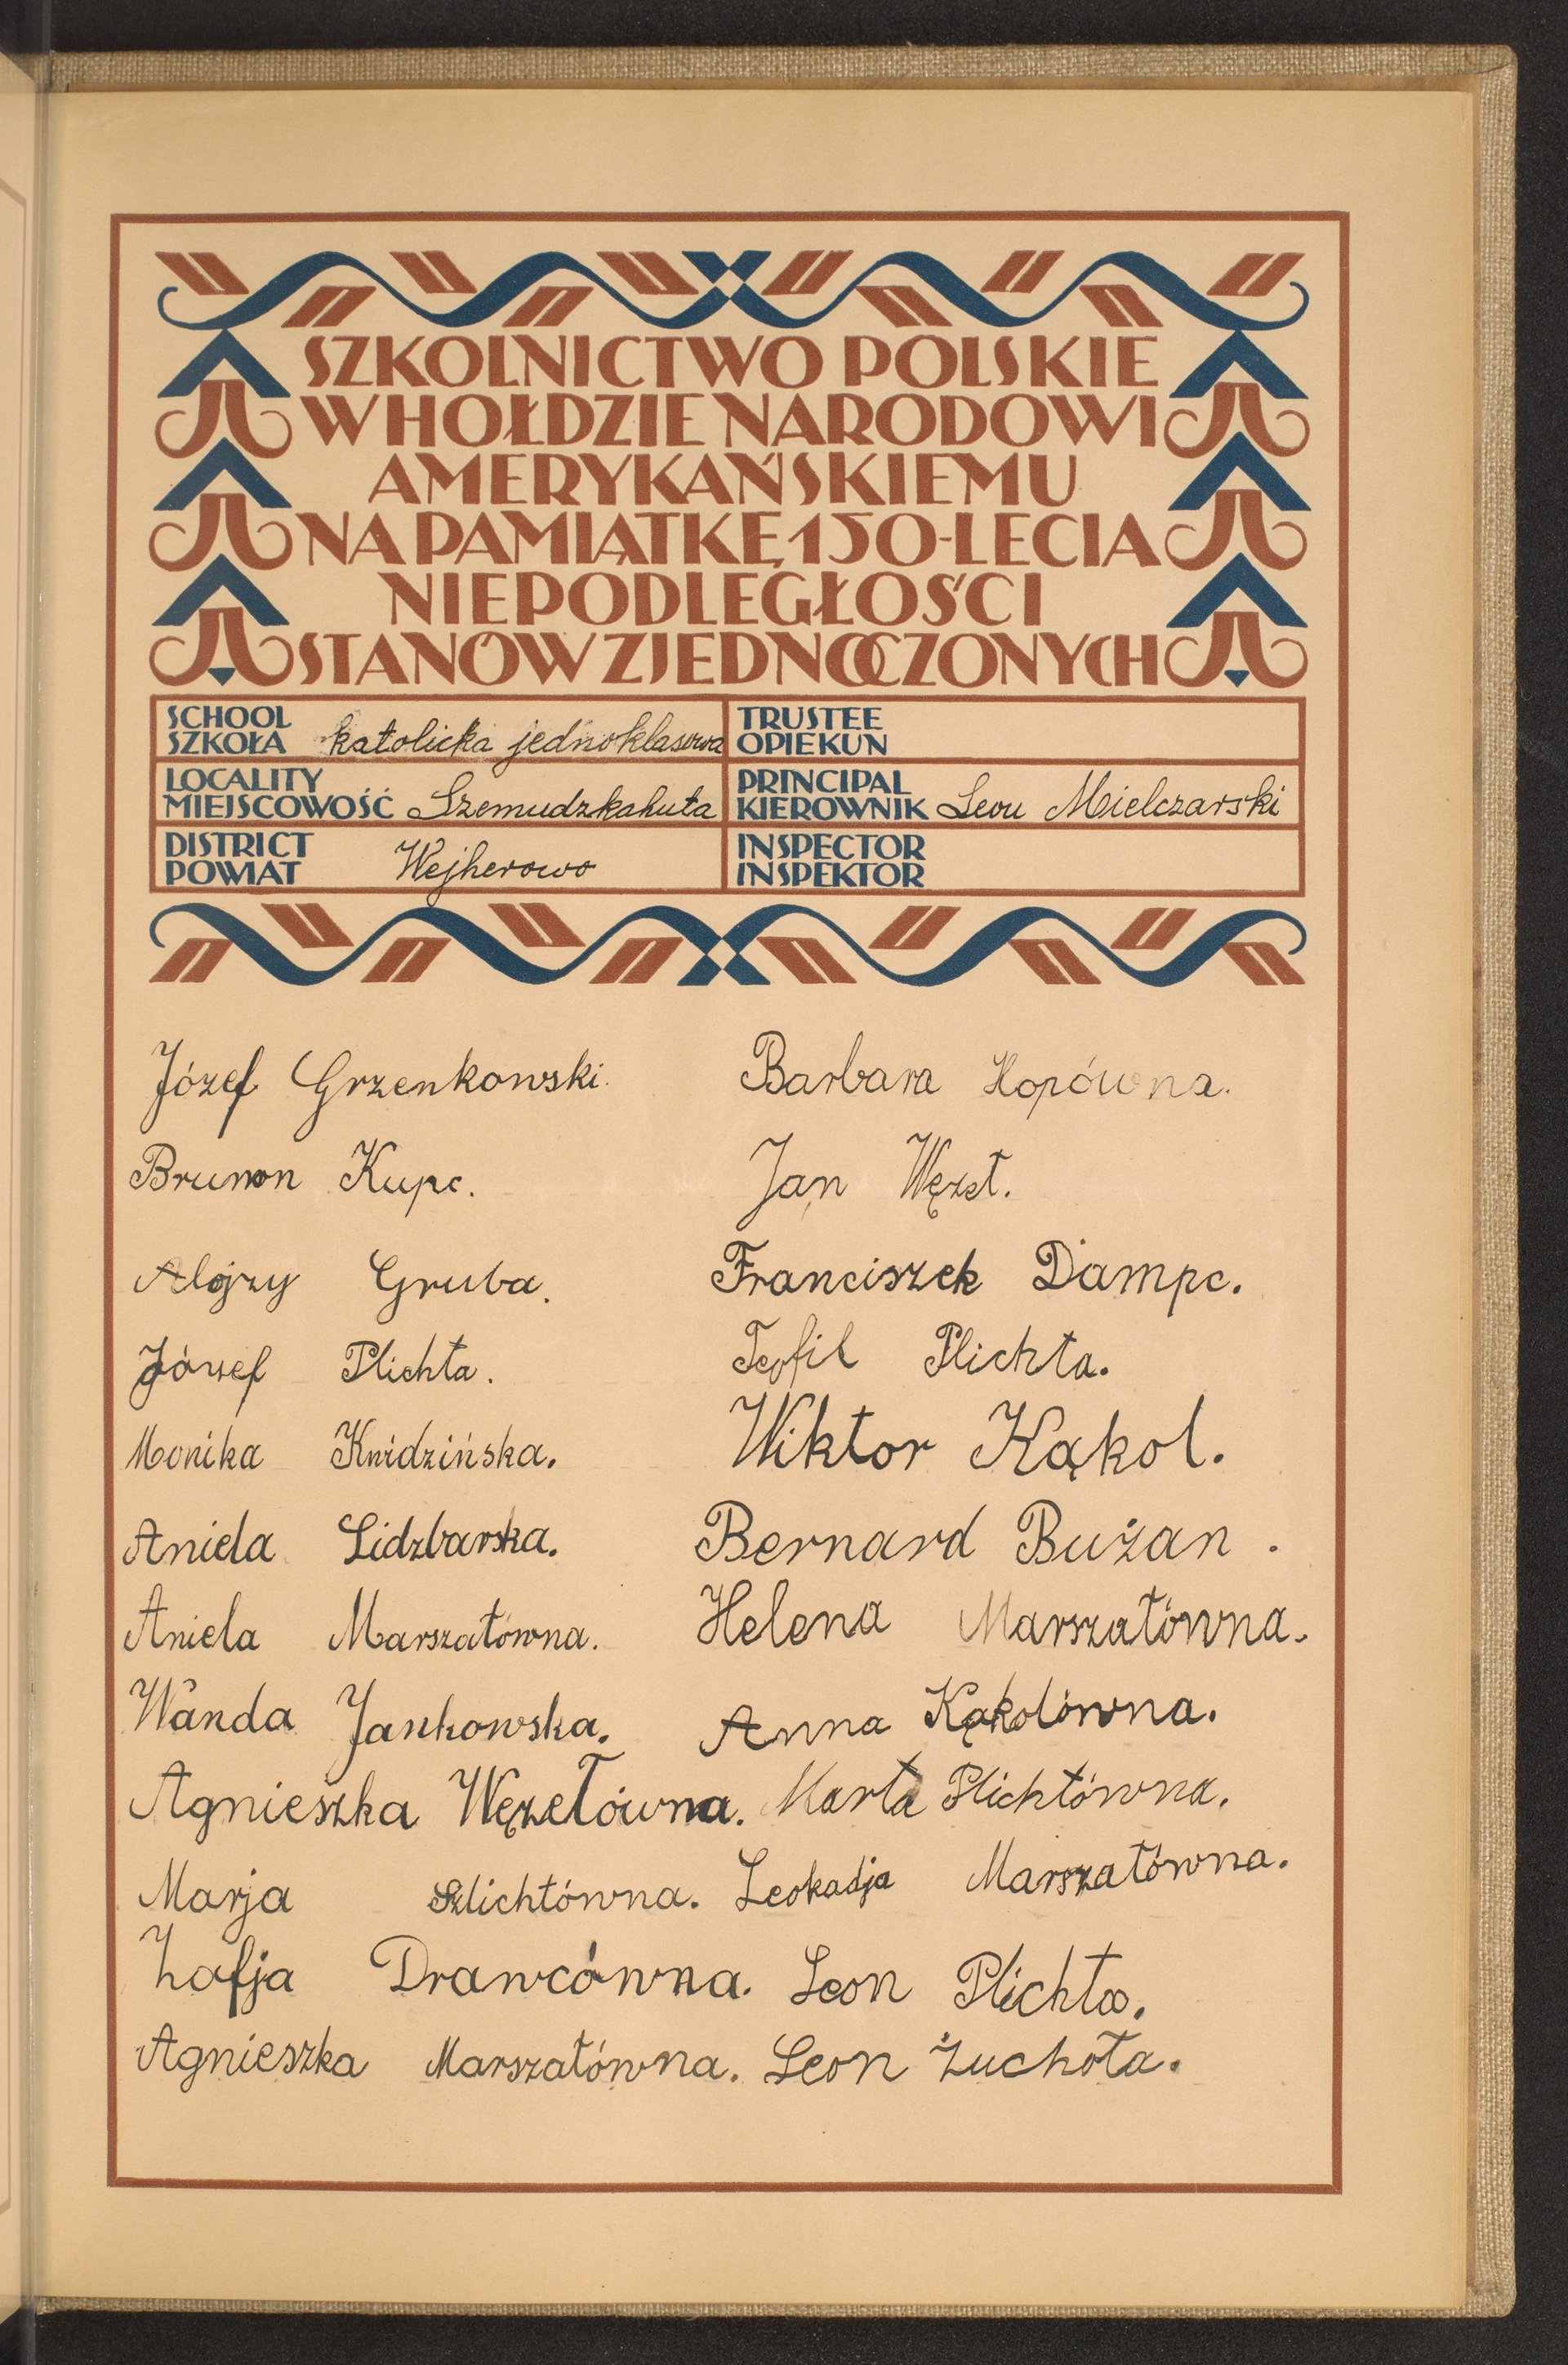 SZKOLNICTWO POLSKIE
W HOŁDZIE NARODOWI
AMERYKAŃSKIEMU
NA PAMIĄTKĘ 150-LECIA
NIEPODLEGŁOŚCI
STANÓW ZJEDNOCZONYCH
SCHOOL
SZKOŁA katolicka jednoklasowa
TRUSTEE
OPIEKUN
LOCALITY
MIEJSCOWOŚĆ Szemudzkahuta
PRINCIPAL
KIEROWNIK Leon Mielczarski
DISTRICT
POWIAT Wejherowo
INSPECTOR
INSPEKTOR
Józef Grzenkowski. Barbara Hopówna.
Brunon Kupc. Jan Węzeł.
Alojzy Gruba. Franciszek Dampc.
Józef Plichta. Teofil Plichta.
Monika Knidzińska. Wiktor Kąkol.
Aniela Lidzbarska. Bernard Bużan.
Aniela Marszałówna. Helena Marszałówna.
Wanda Jankowska. Anna Kąkolówna.
Agnieszka Węzełówna. Marta Plichtówna.
Marja Szlichtówna. Leokadja Marszałówna.
Zofja Drawcówna. Leon Plichta.
Agnieszka Marszałówna. Leon Żuchoła.